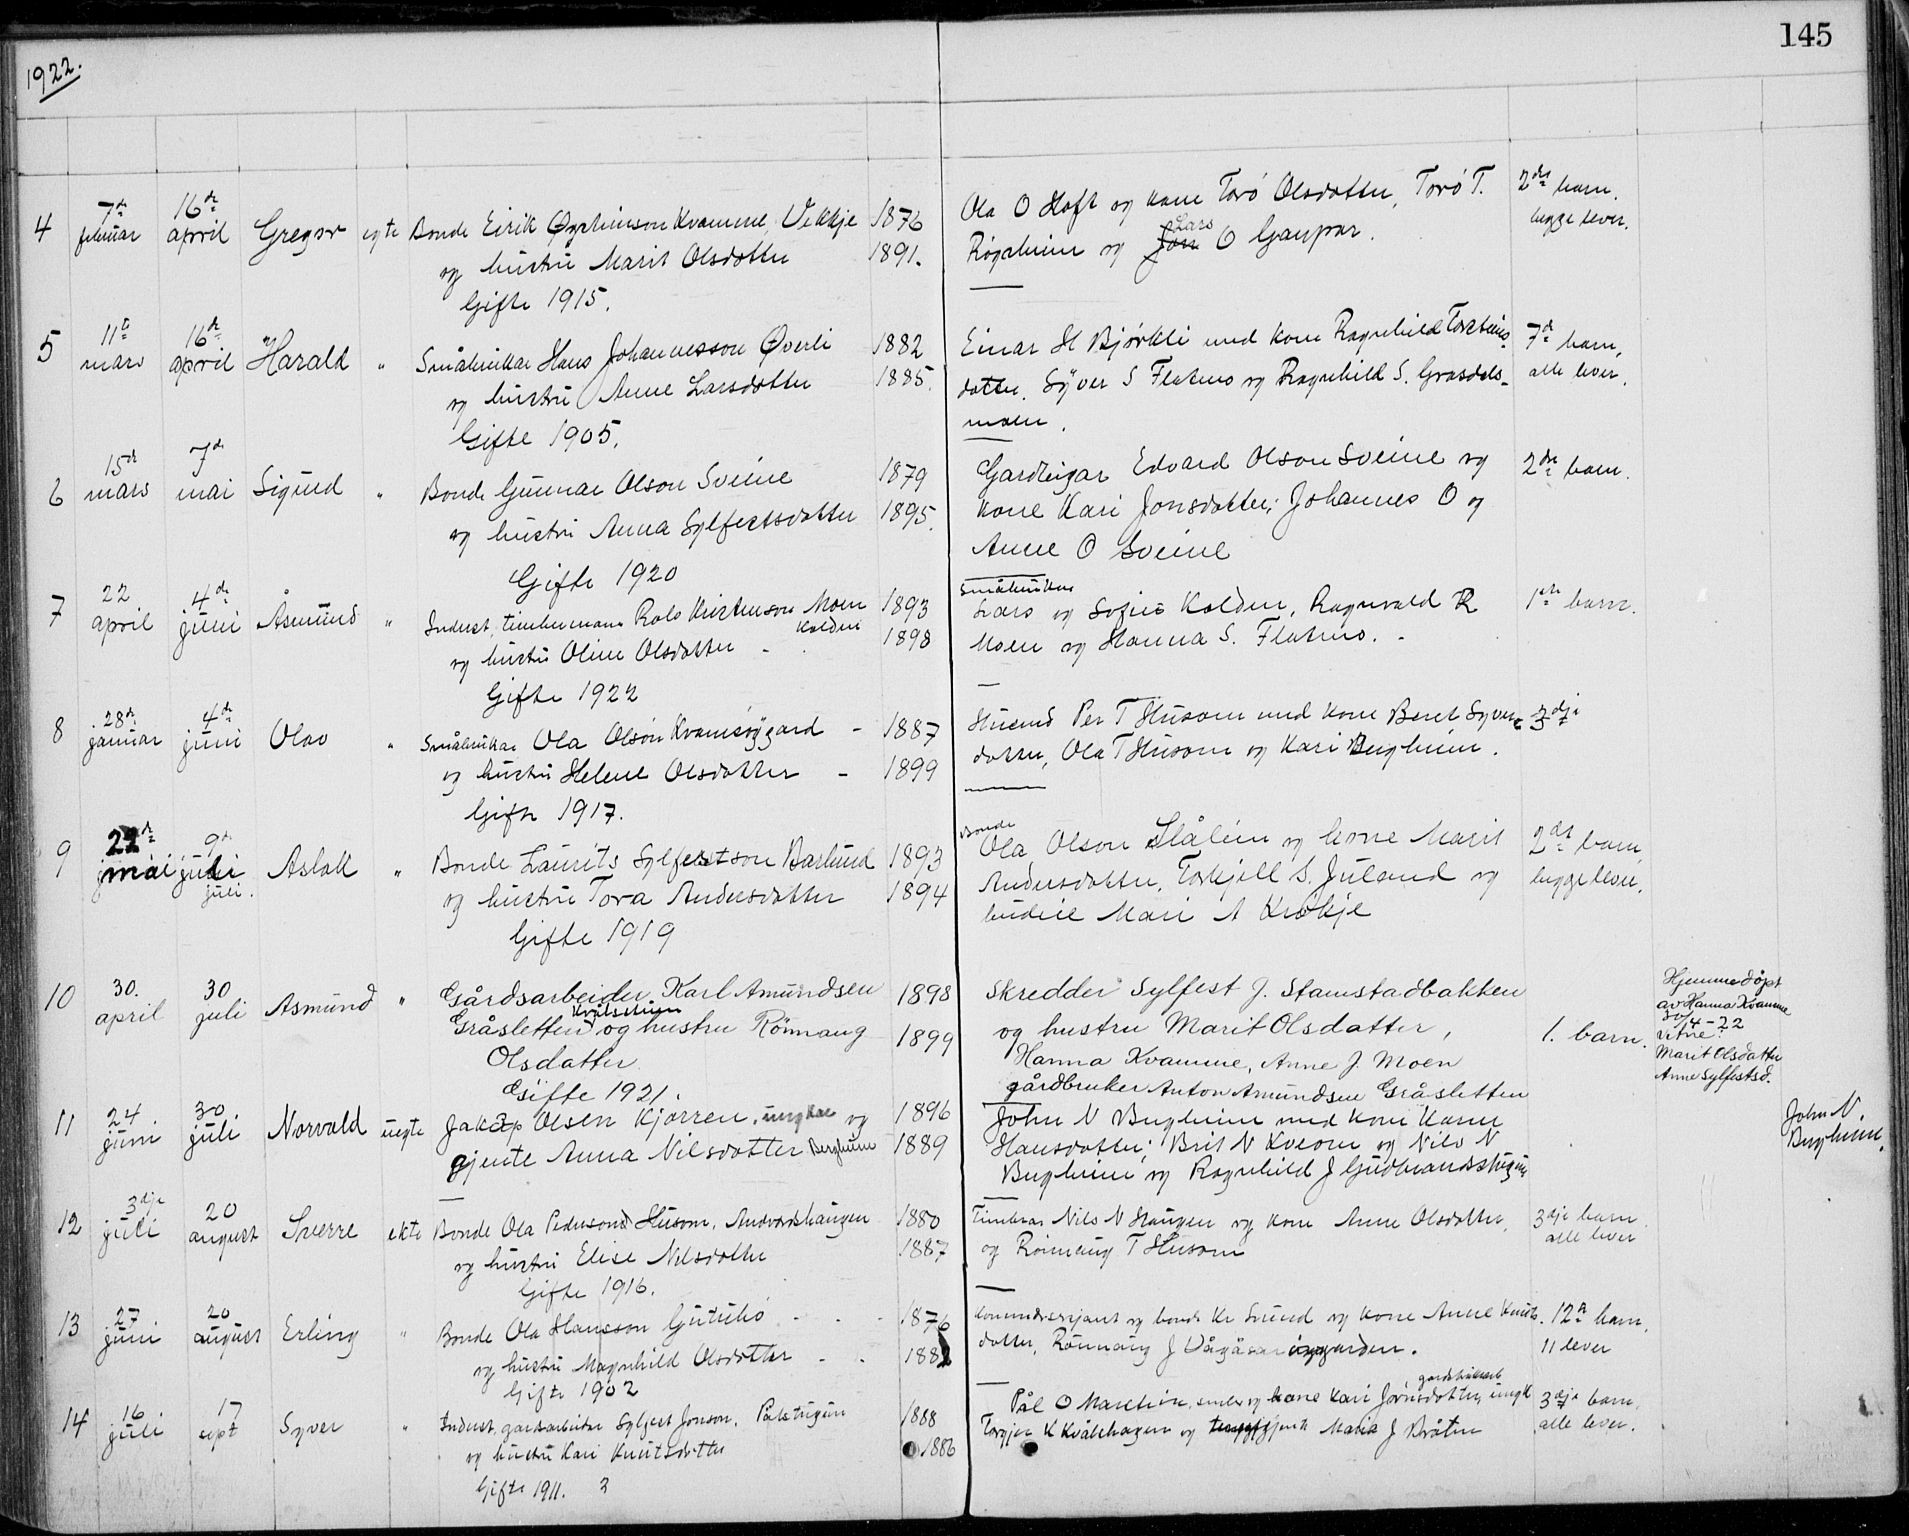 145
1922.
4 7de februar 16de april Gregor egte Bonde Eirik Øysteinson Kvamme, Vekkje 1876
og hustru Marit Olsdotter 1891.
Gifte 1915.
Ola O Hoft og kone Torø Olsdotter, Torø T.
Røysheim og Jon Lars O Gaupar.
2det barn.
begge lever.
5 11te mars 16de april Harald " Småbrukar Hans Johannesson Øverli 1882
og hustru Anne Larsdotter 1885.
Gifte 1905.
Einar H Bjørkli med kone Ragnhild Torsteins-
dotter. Syver S Flatmo og Ragnhild S. Grasdals-
moen.
7de barn,
alle lever.
6 15de mars 7de mai Sigurd " Bonde Gunnar Olson Sveine 1879
og hustru Anna Sylfestsdotter 1895.
Gifte 1920
Gardeigar Edvard Olson Sveine og
kone Kari Jonsdotter; Johannes O og
Anne O Sveine
2det barn.
7 22 april 4de juni Åsmund " Indust. timbermann Rolv Kristenson Moen 1893
og hustru Oline Olsdotter - Kolden 1898
Gifte 1922
Småbrukar
Lars og Sofie Kolden, Ragnvald R
Moen og Hanna S. Flatmo. -
1ste barn.
8 28de januar 4de juni Olav " Småbrukar Ola Olson Kvamsøygard - 1887
og hustru Helene Olsdotter - 1899
Gifte 1917.
Husmd Per T Husom med kone Beret Syvers-
dotter, Ola T Husom og Kari Bergheim.
3dje
9 22de mai 9de juli juli. Aslak " Bonde Laurits Sylfestson Barlund 1893
og hustru Tora Andersdotter 1894
Gifte 1919
Bonde
Ola Olson Slålien og kone Marit
Andersdotter, Torkjell S. Juland og
budeie Mari A Krøkje
2det barn,
begge lever.
10 30. april 30 juli Asmund " Gårdsarbeider Karl Amundsen 1898
Gråsletten og hustru Rönnaug 1899
Olsdatter
Gifte 1921.
Skredder Sylfest J. Stamstadbakken
og hustru Marit Olsdatter,
Hanna Kvamme, Anne J. Moen
gårdbruker Anton Amundsen Gråsletten
1. barn.
Hjemmedöpt
av Hanna Kvamme
30/4-22
Vitne:
Marit Olsdatter
Anne Sylfestsd.
11 24 juni 30 juli Norvald uegte Jakop Olsen Kjørren, ungkar og 1896
gjente Anna Nilsdotter Bergheim 1889
John N Bergheim med kone Karen
Hansdotter; Brit N Kvom og Nils N
Bergheim og Ragnhild J Gudbrandsstugun
John N.
Bergheim.
12 3dje juli 20 august Sverre ekte Bonde Ola Pederson Husom, Andvordshaugen 1880
og hustru Elise Nilsdotter 1887
Gifte 1916.
Timbrar Nils N Haugen og kone Anne Olsdotter,
og Rönnaug T Husom
3dje barn
alle lever
13 27 juni 20 august Erling " Bonde Ola Hansson Gutuliø - - - 1876
og hustru Magnhild Olsdotter - - 1882
Gifte 1902
Kommdersersjant og bonde Kr Snund og kone Anne Knuts-
dotter, Rönnaug J Vågåsar iggarden.
12te barn,
11 lever
14 16 juli 17 sept Syver " Indust, gardsarbeidar Sylfest Jonson, Pålstugun 1888
og hustru Kari Knutsdotter 1886
Gifte 1911. 3
Pål O Marstein, smed og kone Kari Jørnsdotter, ungk
Torgjer K Kvålshagen og gjente Maria J Bråten
3dje barn,
alle lever.